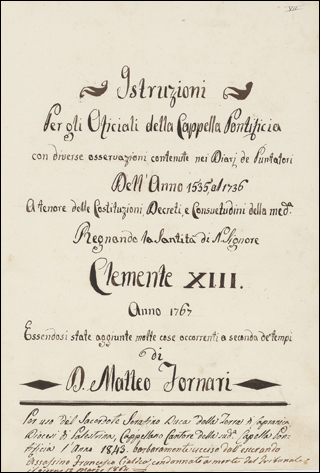 Istruzioni
Per gli Oficiali della Cappella Pontificia
con diverse osservazioni contenute nei Diarj de Puntatori
Dell'Anno 1535 al 1736
A tenore delle Costituzioni, Decreti, e Consuetudini della med.a
Regnando la Santità di N. Signore
Clemente XIII.
Anno 1767
Essendosi state aggiunte molte cose occorrenti a seconda de' tempi
di
D. Matteo Fornari
Per uso del Sacerdote Serafino Duca della Torre di
Diocesi di Palestrina, Cappellano Cantore della sud.a Cappella Pon-
tificia l'Anno 1843. barbaramente ucciso dall'esecrando
Assassino Francesco condannato a morte dal Tribunale